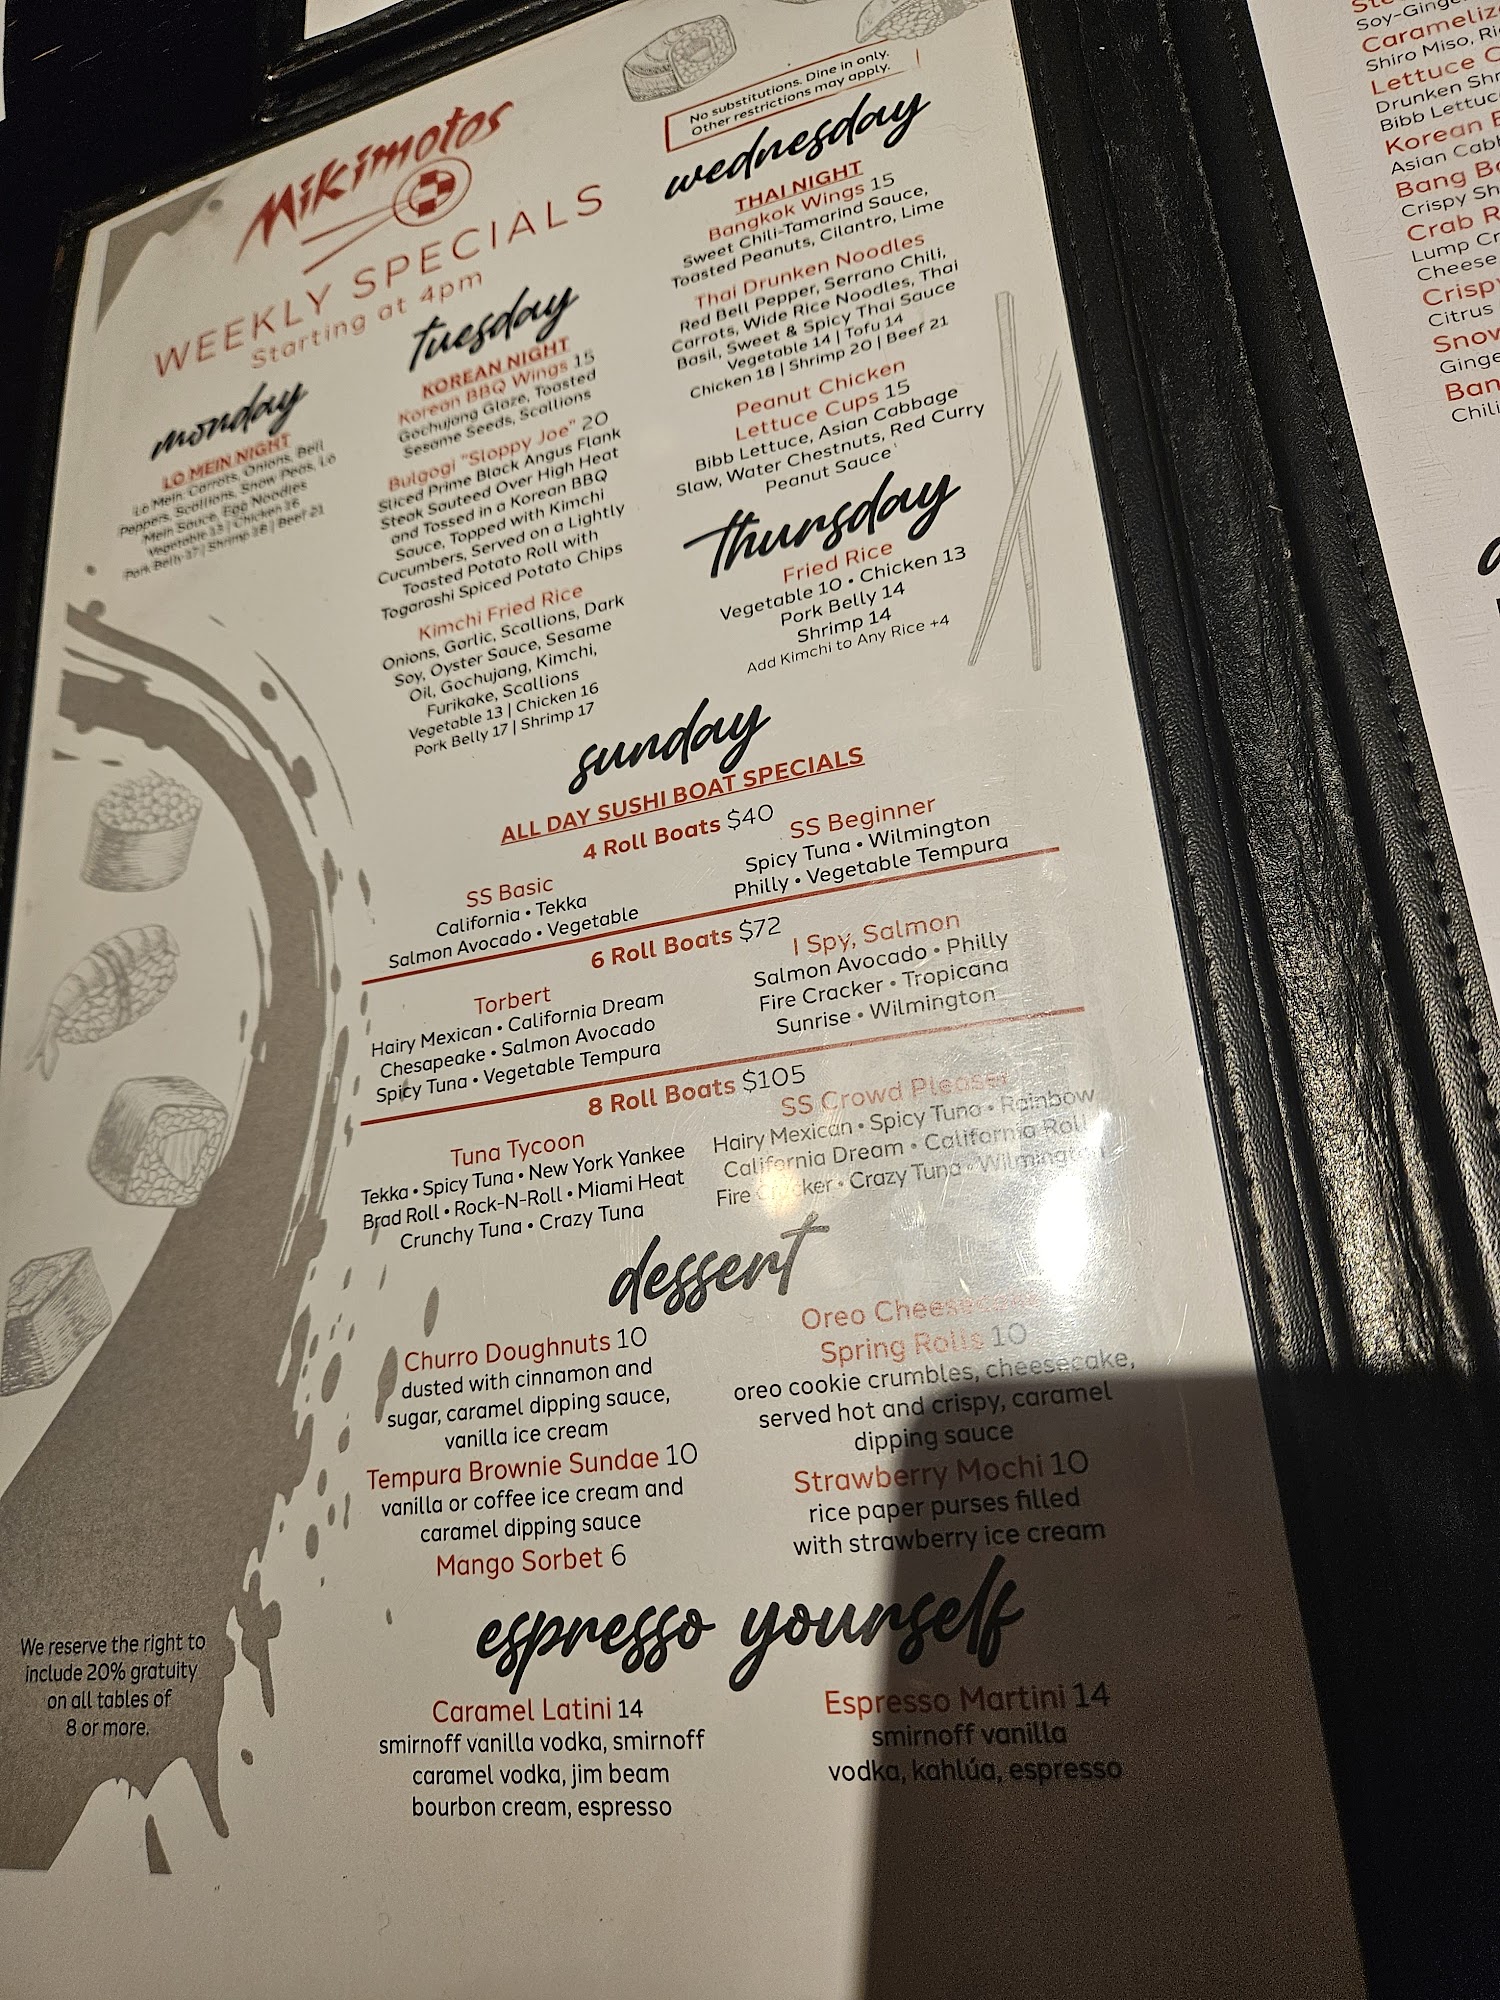 Mikimotos
WEEKLY SPECIALS
Starting at 4pm
monday
LO MEIN NIGHT
Lo Mein: Carrots, Onions, Bell
Peppers, Scallions, Snow Peas, Lo
Mein Sauce, Egg Noodles
Vegetable 13 | Chicken 16
Pork Belly 17 | Shrimp 18 | Beef 21
tuesday
KOREAN NIGHT
Korean BBQ Wings 15
Gochujang Glaze, Toasted
Sesame Seeds, Scallions
Bulgogi "Sloppy Joe" 20
Sliced Prime Black Angus Flank
Steak Sauteed Over High Heat
and Tossed in a Korean BBQ
Sauce, Topped with Kimchi
Cucumbers, Served on a Lightly
Toasted Potato Roll with
Togarashi Spiced Potato Chips
Kimchi Fried Rice
Onions, Garlic, Scallions, Dark
Soy, Oyster Sauce, Sesame
Oil, Gochujang, Kimchi,
Furikake, Scallions
Vegetable 13 | Chicken 16
Pork Belly 17 | Shrimp 17
No substitutions. Dine in only.
Other restrictions may apply.
wednesday
THAI NIGHT
Bangkok Wings 15
Sweet Chili-Tamarind Sauce,
Toasted Peanuts, Cilantro, Lime
Thai Drunken Noodles
Red Bell Pepper, Serrano Chili,
Carrots, Wide Rice Noodles, Thai
Basil, Sweet & Spicy Thai Sauce
Vegetable 14 | Tofu 14
Chicken 18 | Shrimp 20 | Beef 21
Peanut Chicken
Lettuce Cups 15
Bibb Lettuce, Asian Cabbage
Slaw, Water Chestnuts, Red Curry
Peanut Sauce
thursday
Fried Rice
Vegetable 10 • Chicken 13
Pork Belly 14
Shrimp 14
Add Kimchi to Any Rice +4
sunday
ALL DAY SUSHI BOAT SPECIALS
4 Roll Boats $40
SS Basic
California • Tekka
Salmon Avocado • Vegetable
SS Beginner
Spicy Tuna • Wilmington
Philly • Vegetable Tempura
6 Roll Boats $72
Torbert
Hairy Mexican • California Dream
Chesapeake • Salmon Avocado
Spicy Tuna • Vegetable Tempura
I Spy, Salmon
Salmon Avocado • Philly
Fire Cracker • Tropicana
Sunrise • Wilmington
8 Roll Boats $105
Tuna Tycoon
Tekka • Spicy Tuna • New York Yankee
Brad Roll • Rock-N-Roll • Miami Heat
Crunchy Tuna • Crazy Tuna
SS Crowd Pleaser
Hairy Mexican • Spicy Tuna • Rainbow
California Dream • California Roll
Fire Cracker • Crazy Tuna • Wilmington
dessert
Churro Doughnuts 10
dusted with cinnamon and
sugar, caramel dipping sauce,
vanilla ice cream
Tempura Brownie Sundae 10
vanilla or coffee ice cream and
caramel dipping sauce
Mango Sorbet 6
Oreo Cheesecake
Spring Rolls 10
oreo cookie crumbles, cheesecake,
served hot and crispy, caramel
dipping sauce
Strawberry Mochi 10
rice paper purses filled
with strawberry ice cream
espresso yourself
Caramel Latini 14
smirnoff vanilla vodka, smirnoff
caramel vodka, jim beam
bourbon cream, espresso
Espresso Martini 14
smirnoff vanilla
vodka, kahlúa, espresso
We reserve the right to
include 20% gratuity
on all tables of
8 or more.
Soy-Ginger
Shiro Miso,
Lettuce
Bibb
Korean
Asian
Bang
Crispy
Crab
Lump
Cheese
Citrus
Chili